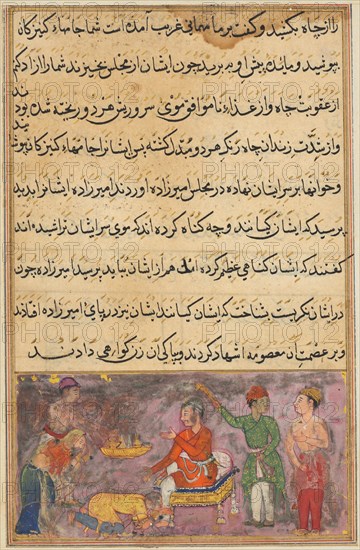 را از چاه بکشید و گفت بر ما مهمانی غریب آمده است شما جامهاء کنیزکان
بپوشید و مائده پیش او ببرید چون ایشان از مجلس بخیزند شما را آزاد کنم
از عقوبت چاه و از غذاء ناموافق موی سر و ریش هر دو ریخته شده بود
و از شدت زندان چاه رنگ هر دو مبدل کشته پس ایشانرا جامهاء کنیزکان پوشانیدند
و خوانها بر سر ایشان نهاده در مجلس امیرزاده اوردند امیرزاده ایشانرا بدید
پرسید که ایشان کیانند و چه کناه کرده اند که موی سر ایشان تراشیده اند
کفتند که ایشان کناهی عظیم کرده اند هم از ایشان باید پرسید امیرزاده چون
در ایشان نکریست بشناخت که ایشان کیانند ایشان نیز در پای امیرزاده افتادند
و بر عصمت آن معصومه اشهاد کردند و بپاکی آن زن کواهی دادند